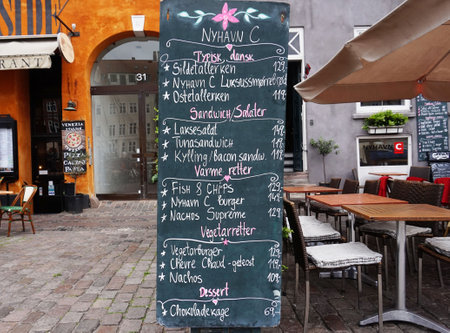 NYHAVN C
TYPISK dansk
★ Sildetallerken 129
★ NYHAVN C Luksussmørrebrød
★ Ostetallerken 119
Sandwich/Salater
★ Laksesalat 149
★ Tunasandwich 119
★ Kylling/Bacon sandw.
Varme retter
★ FISH & CHIPS 139
★ NYHAVN C burger
★ NACHOS SUPREME 129
Vegetarretter
★ Vegetarburger 129
★ Chèvre Chaud - geteost 119
★ NACHOS 109
Dessert
★ Chokoladekage 69
31
RANT
VENEZIA
PIZZA
NYHAVN C